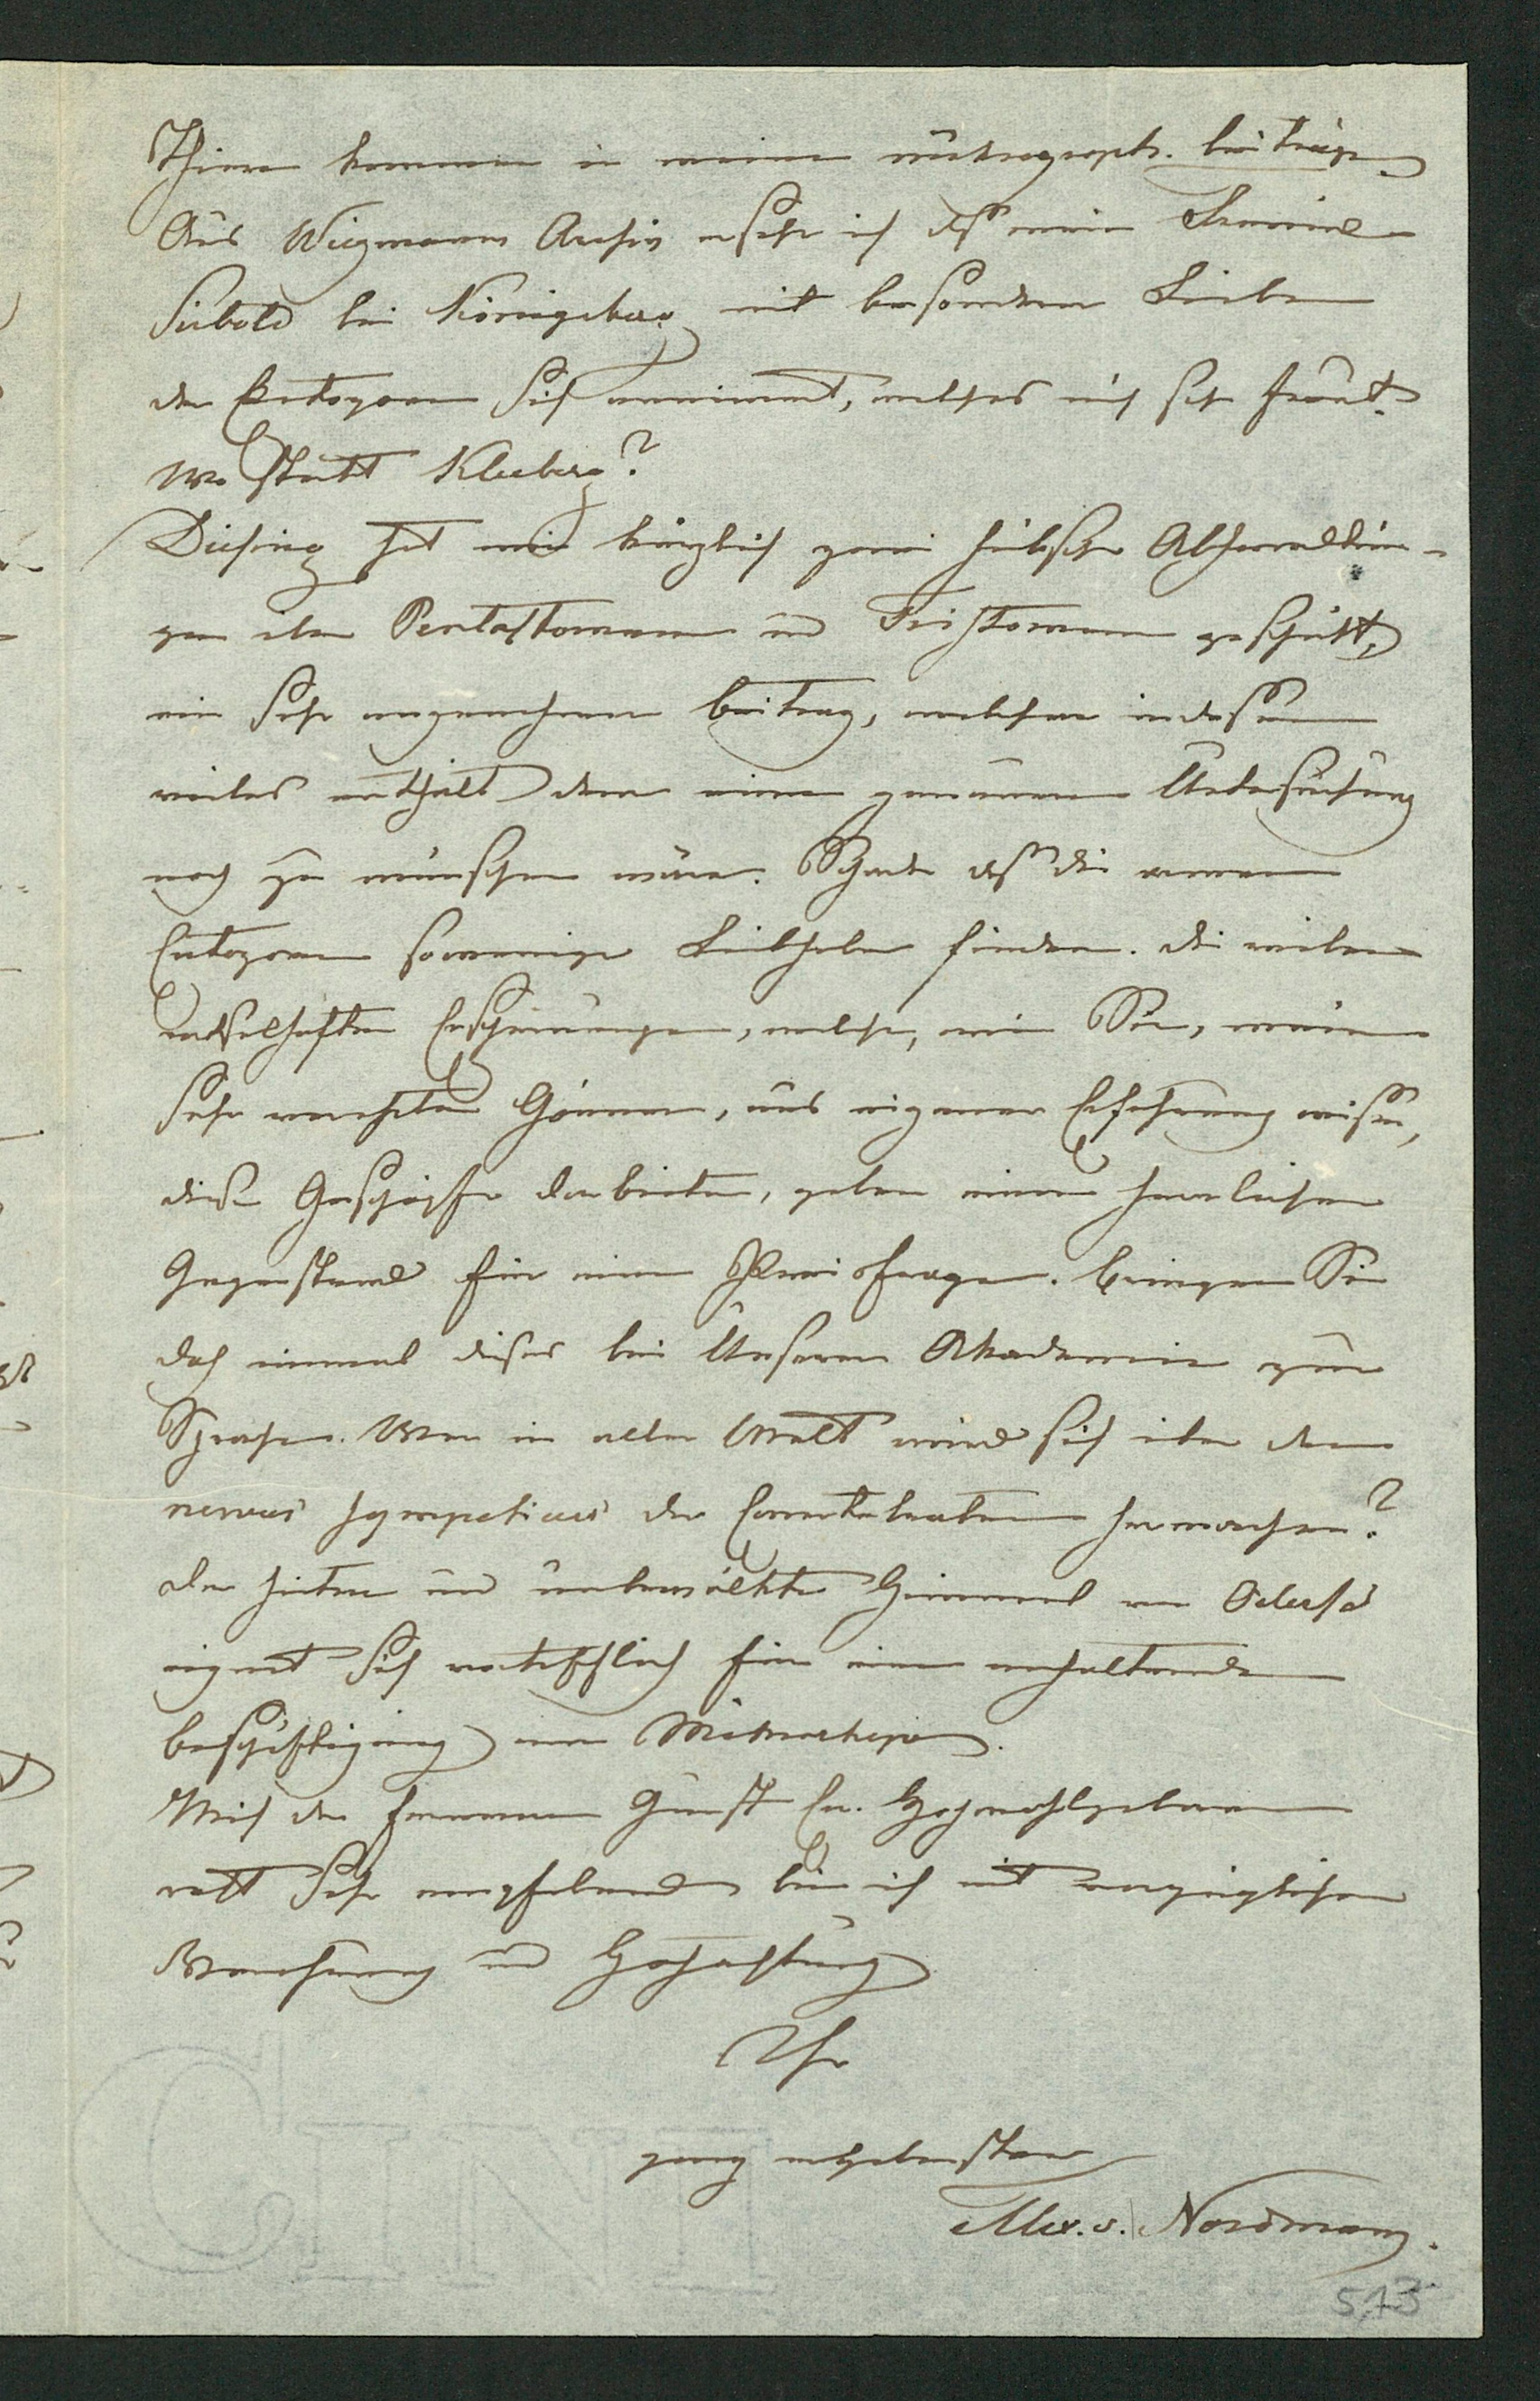 Thiere kommen in meinen mikrograph. Beiträgen.
Aus Wiegmanns Archiv ersehe ich daß mein Freund
Siebold bei Königsberg mit besonderer Liebe
der Entozoen sich annimmt, welches mich sehr freut.
Wo steckt Kleeberg?
Diesing hat mir kürzlich zwei hübsche Abhandlun-
gen über Pentastomum und Tristomum geschickt,
ein sehr angenehmer Beitrag, welcher indessen
vieles enthält dem eine genauere Untersuchung
noch zu wünschen wäre. Schade daß die armen
Entozoen so wenige Liebhaber finden. Die vielen
rätselhaften Erscheinungen, welche, wie Sie, mein
sehr verehrter Gönner, aus eigener Erfahrung wissen,
diese Geschöpfe darbieten, geben einen herrlichen
Gegenstand für eine Preisfrage. Bringen Sie
doch einmal dieses bei Unserer Akademie zur
Sprache. Wer in aller Welt wird sich über den
nervus sympaticus der Evertebraten hermachen?
der heitere und unbewölkte Himmel von Odessa
eignet sich vortrefflich für eine anhaltende
Beschäftigung am Mikroskope.
Mich der ferneren Gunst Ew. Hochwohlgeboren
recht sehr empfehlend bin ich mit vorzüglicher
Verehrung und Hochachtung
Ihr
ganz ergebenster
Alex. v. Nordmann.
573